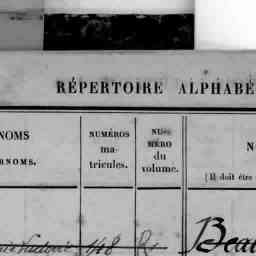 RÉPERTOIRE ALPHABÉ
NOMS
RNOMS.
NUMÉROS
ma-
tricules.
NU-
MÉRO
du
volume.
N
(Il doit être
148
Beau